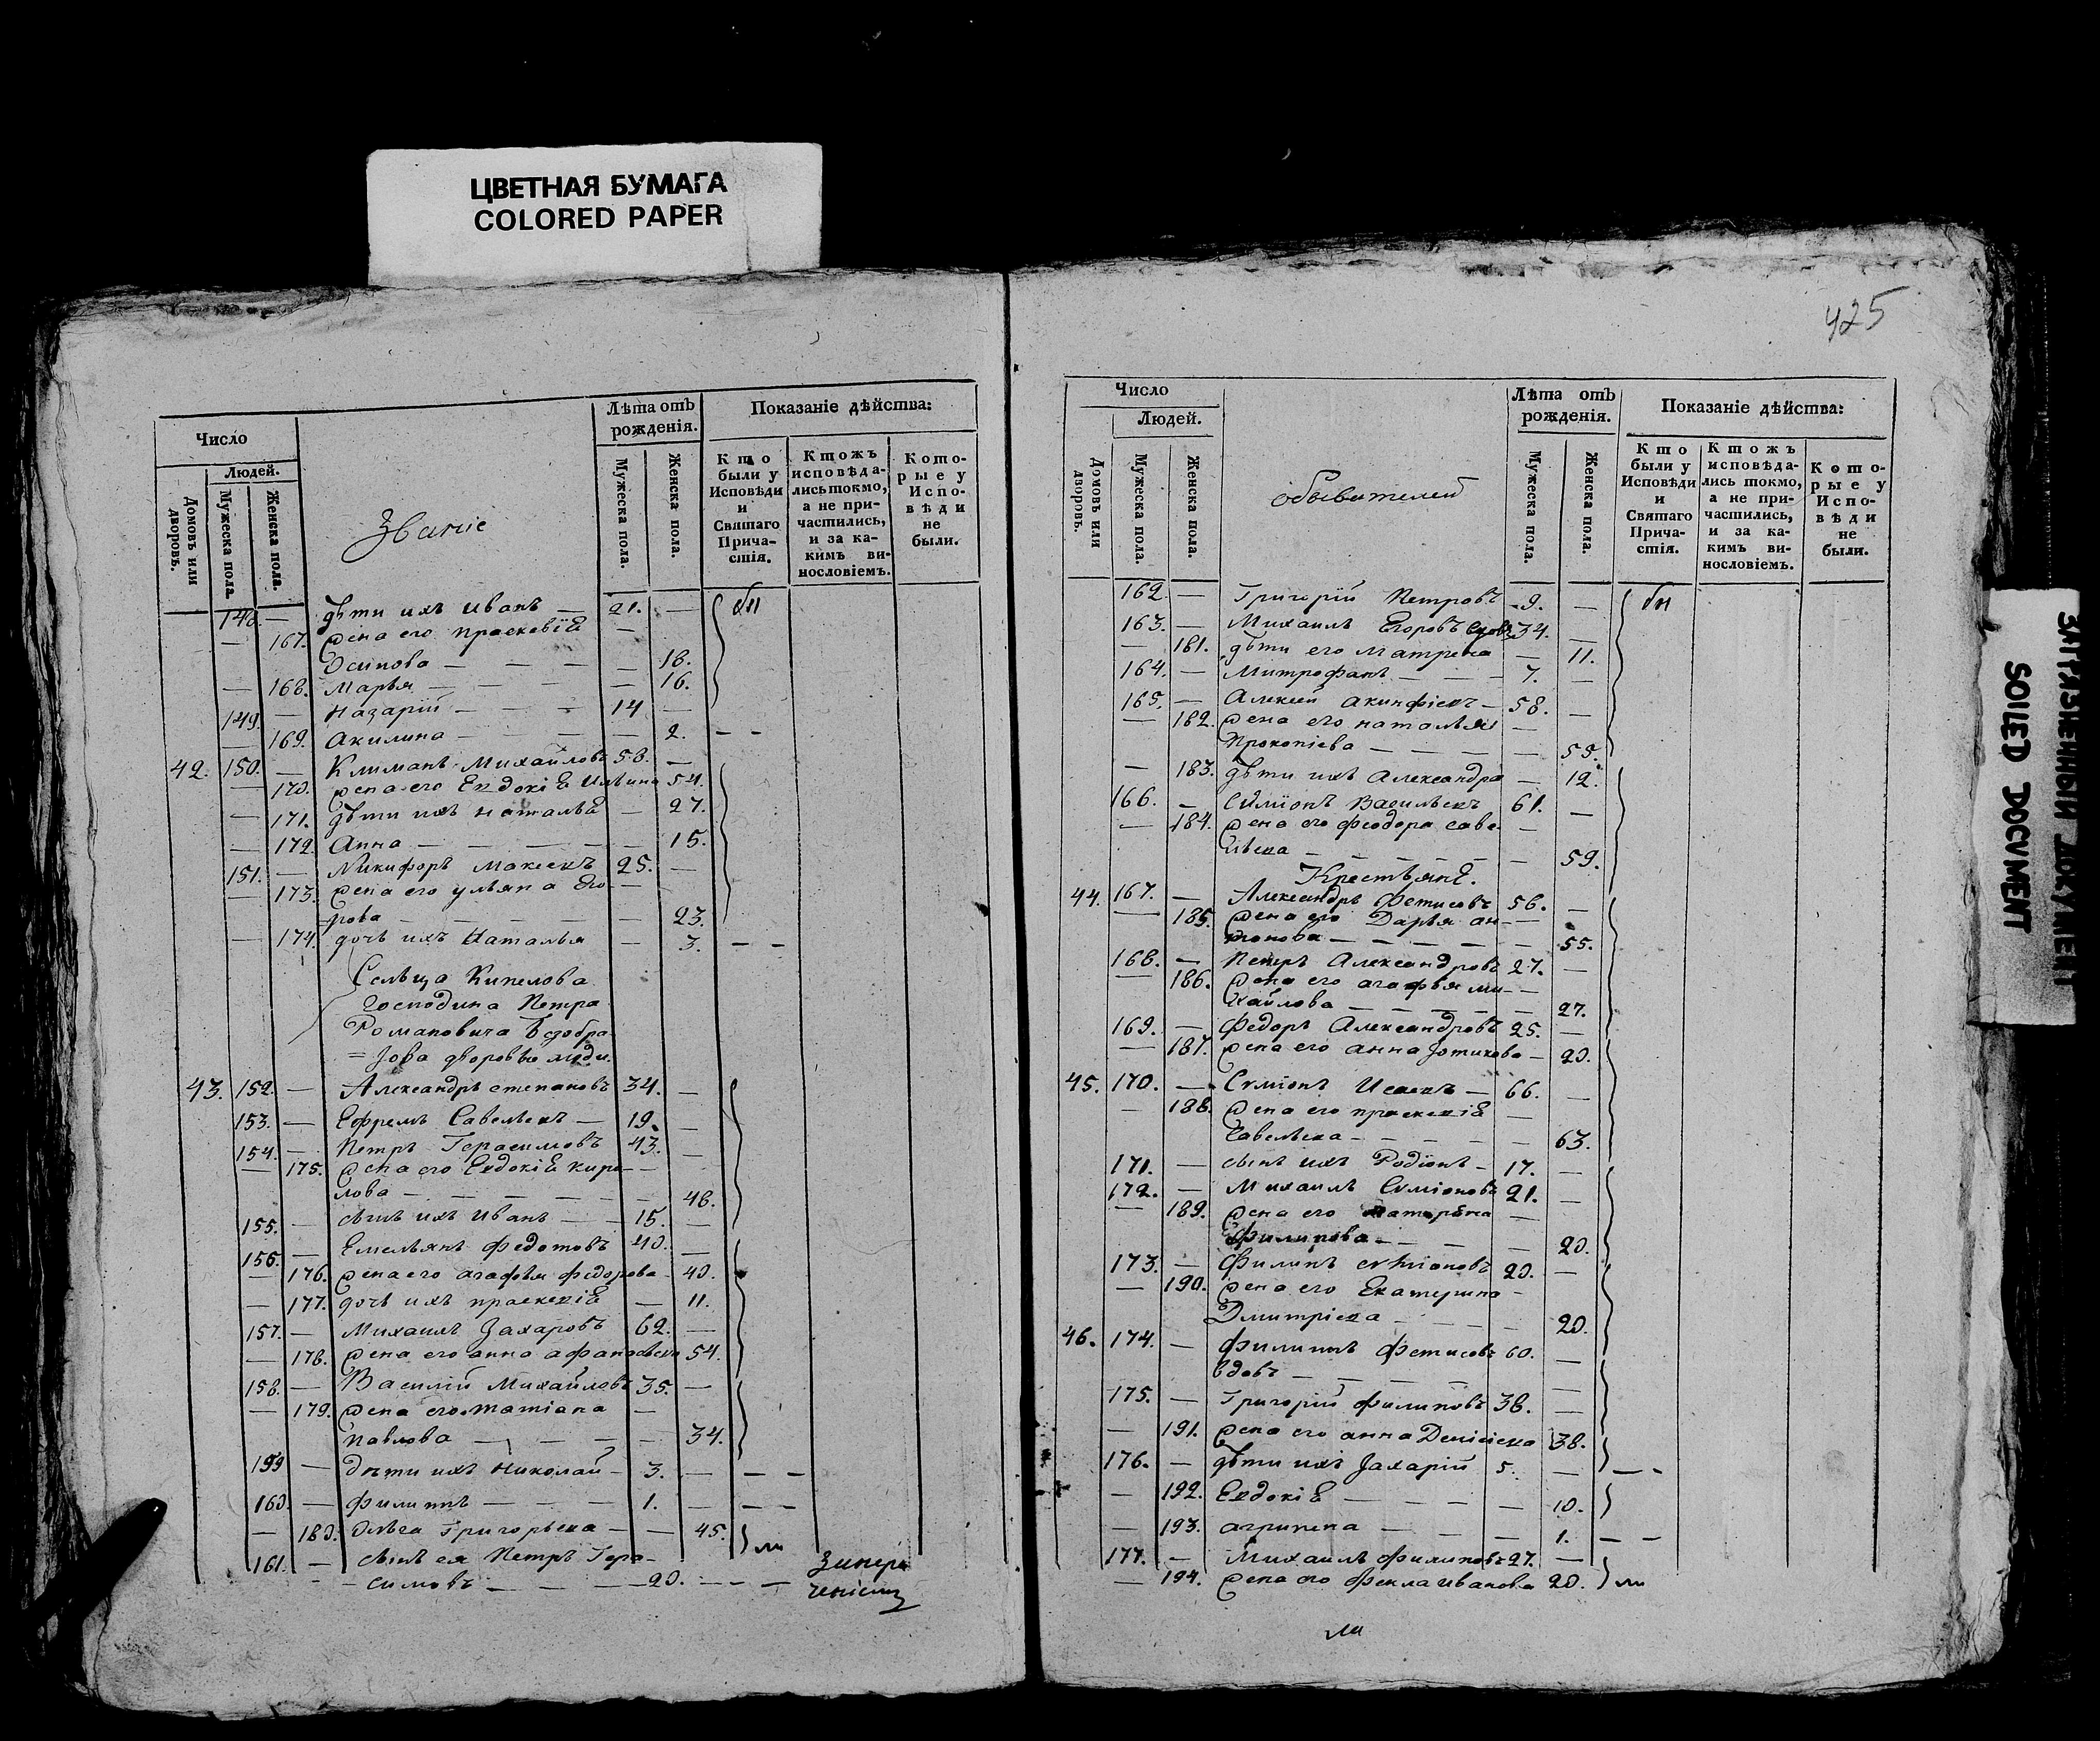 ЦВЕТНАЯ БУМАГА
COLORED PAPER
Число
Людей.
Домовъ или дворовъ.
Мужеска пола.
Женска пола.
Званіе
Лѣта отъ рожденія.
Мужеска пола.
Женска пола.
Показаніе дѣйства:
Кто были у Исповѣди и Святаго Прича-стія.
Ктожъ исповѣда-лись токмо, а не при-частились, и за ка-кимъ ви-нословіемъ.
Кото-рые у Испо-вѣди не были.
148. — дѣти ихъ Иванъ — 21. — бы
— 167. жена его праскевіа —
Осипова — — — — 18.
— 168. Марья — — — — 16.
149. — Назарій — — — 14 —
— 169. Акилина — — — — 2. — —
42. 150. — Климанъ Михайловъ 58. —
— 170. жена его Евдокіа Ильина 54.
— 171. дѣти ихъ Наталья — 27.
— 172. Анна — — — — 15.
151. — Никифоръ Макеевъ 25. —
— 173. жена его ульяна Его- —
рова — — — — — 23.
— 174. дочь ихъ Наталья — 3. — —
Сельца Кипелова
Господина Петра
Романовича Безобра
= зова дворовые люди.
43. 152. — Александръ степановъ 34. —
153. — Ефремъ Савельевъ — 19. —
154. — Петръ Герасимовъ 43. —
— 175. жена его Евдокіа кири- —
лова — — — — — 48.
155. — сынъ ихъ Иванъ — — 15. —
156. — Емельянъ Федотовъ 40. —
— 176. жена его агафья федорова — 40.
— 177. дочь ихъ праскевіа — 11.
157. — Михаилъ Захаровъ 62. —
— 178. жена его анна афанасьева 54.
158. — Василій Михайловъ 35. —
— 179. жена его татіана —
Павлова — — — — 34.
159 — дѣти ихъ Николай — 3. — — —
160. — филиппъ — — — 1. — — —
— 180. Ольга Григорьева — — 45. ли
161. — сынъ ея Петръ Гера-
симовъ — — — 20. — — —
425
Число
Людей.
Домовъ или дворовъ.
Мужеска пола.
Женска пола.
обывателей
Лѣта отъ рожденія.
Мужеска пола.
Женска пола.
Показаніе дѣйства:
Кто были у Исповѣди и Святаго Прича-стія.
Ктожъ исповѣда-лись токмо, а не при-частились, и за ка-кимъ ви-нословіемъ.
Кото-рые у Испо-вѣди не были.
162 — Григорій Петровъ 9. — бы
163. — Михаилъ Егоровъ вдовъ 34.
— 181. дѣти его Матрена — 11.
164. — Митрофанъ — — — 7. —
165. — Алексѣй акинфіевъ — 58. —
— 182. жена его наталья —
Прокопіева — — — — 55.
— 183. дѣти ихъ Александра — 12.
166. — Симіонъ Васильевъ 61. —
— 184. жена его феодора саве- —
льева — — — — — 59.
Крестьяне.
44. 167. — Александръ Фетисовъ 56. —
— 185. жена его Дарья ан- —
тонова — — — — — 55.
168. — Петръ Александровъ 27. —
— 186. жена его агафья ми- —
хайлова — — — — — 27.
169. — Федоръ Александровъ 25. —
— 187. жена его анна Зотикова — 20.
45. 170. — Сѵміонъ Исаевъ — 66. —
— 188. жена его праскевіа —
Савельева — — — — — 63.
171. — сынъ ихъ Родіонъ — 17. —
172. — Михаилъ Сѵміоновъ 21. —
— 189. жена его —
Филипова — — — — 20.
173. — Филипъ сѵміоновъ 20. —
— 190. жена его Екатерина —
Дмитріева — — — — 20.
46. 174. — Филиппъ Фетисовъ 60. —
вдовъ — — — — —
175. — Григорій филиповъ 38. —
— 191. жена его анна 38.
176. — дѣти ихъ Захарій 5. — — —
— 192. Евдокіа — — — — 10.
— 193. агрипена — — — 1. — —
177. — Михаилъ филиповъ 27. —
— 194. жена его Фекла иванова 20. ли
ли
ЗАГРЯЗНЕННЫЙ ДОКУМЕНТ
SOILED DOCUMENT